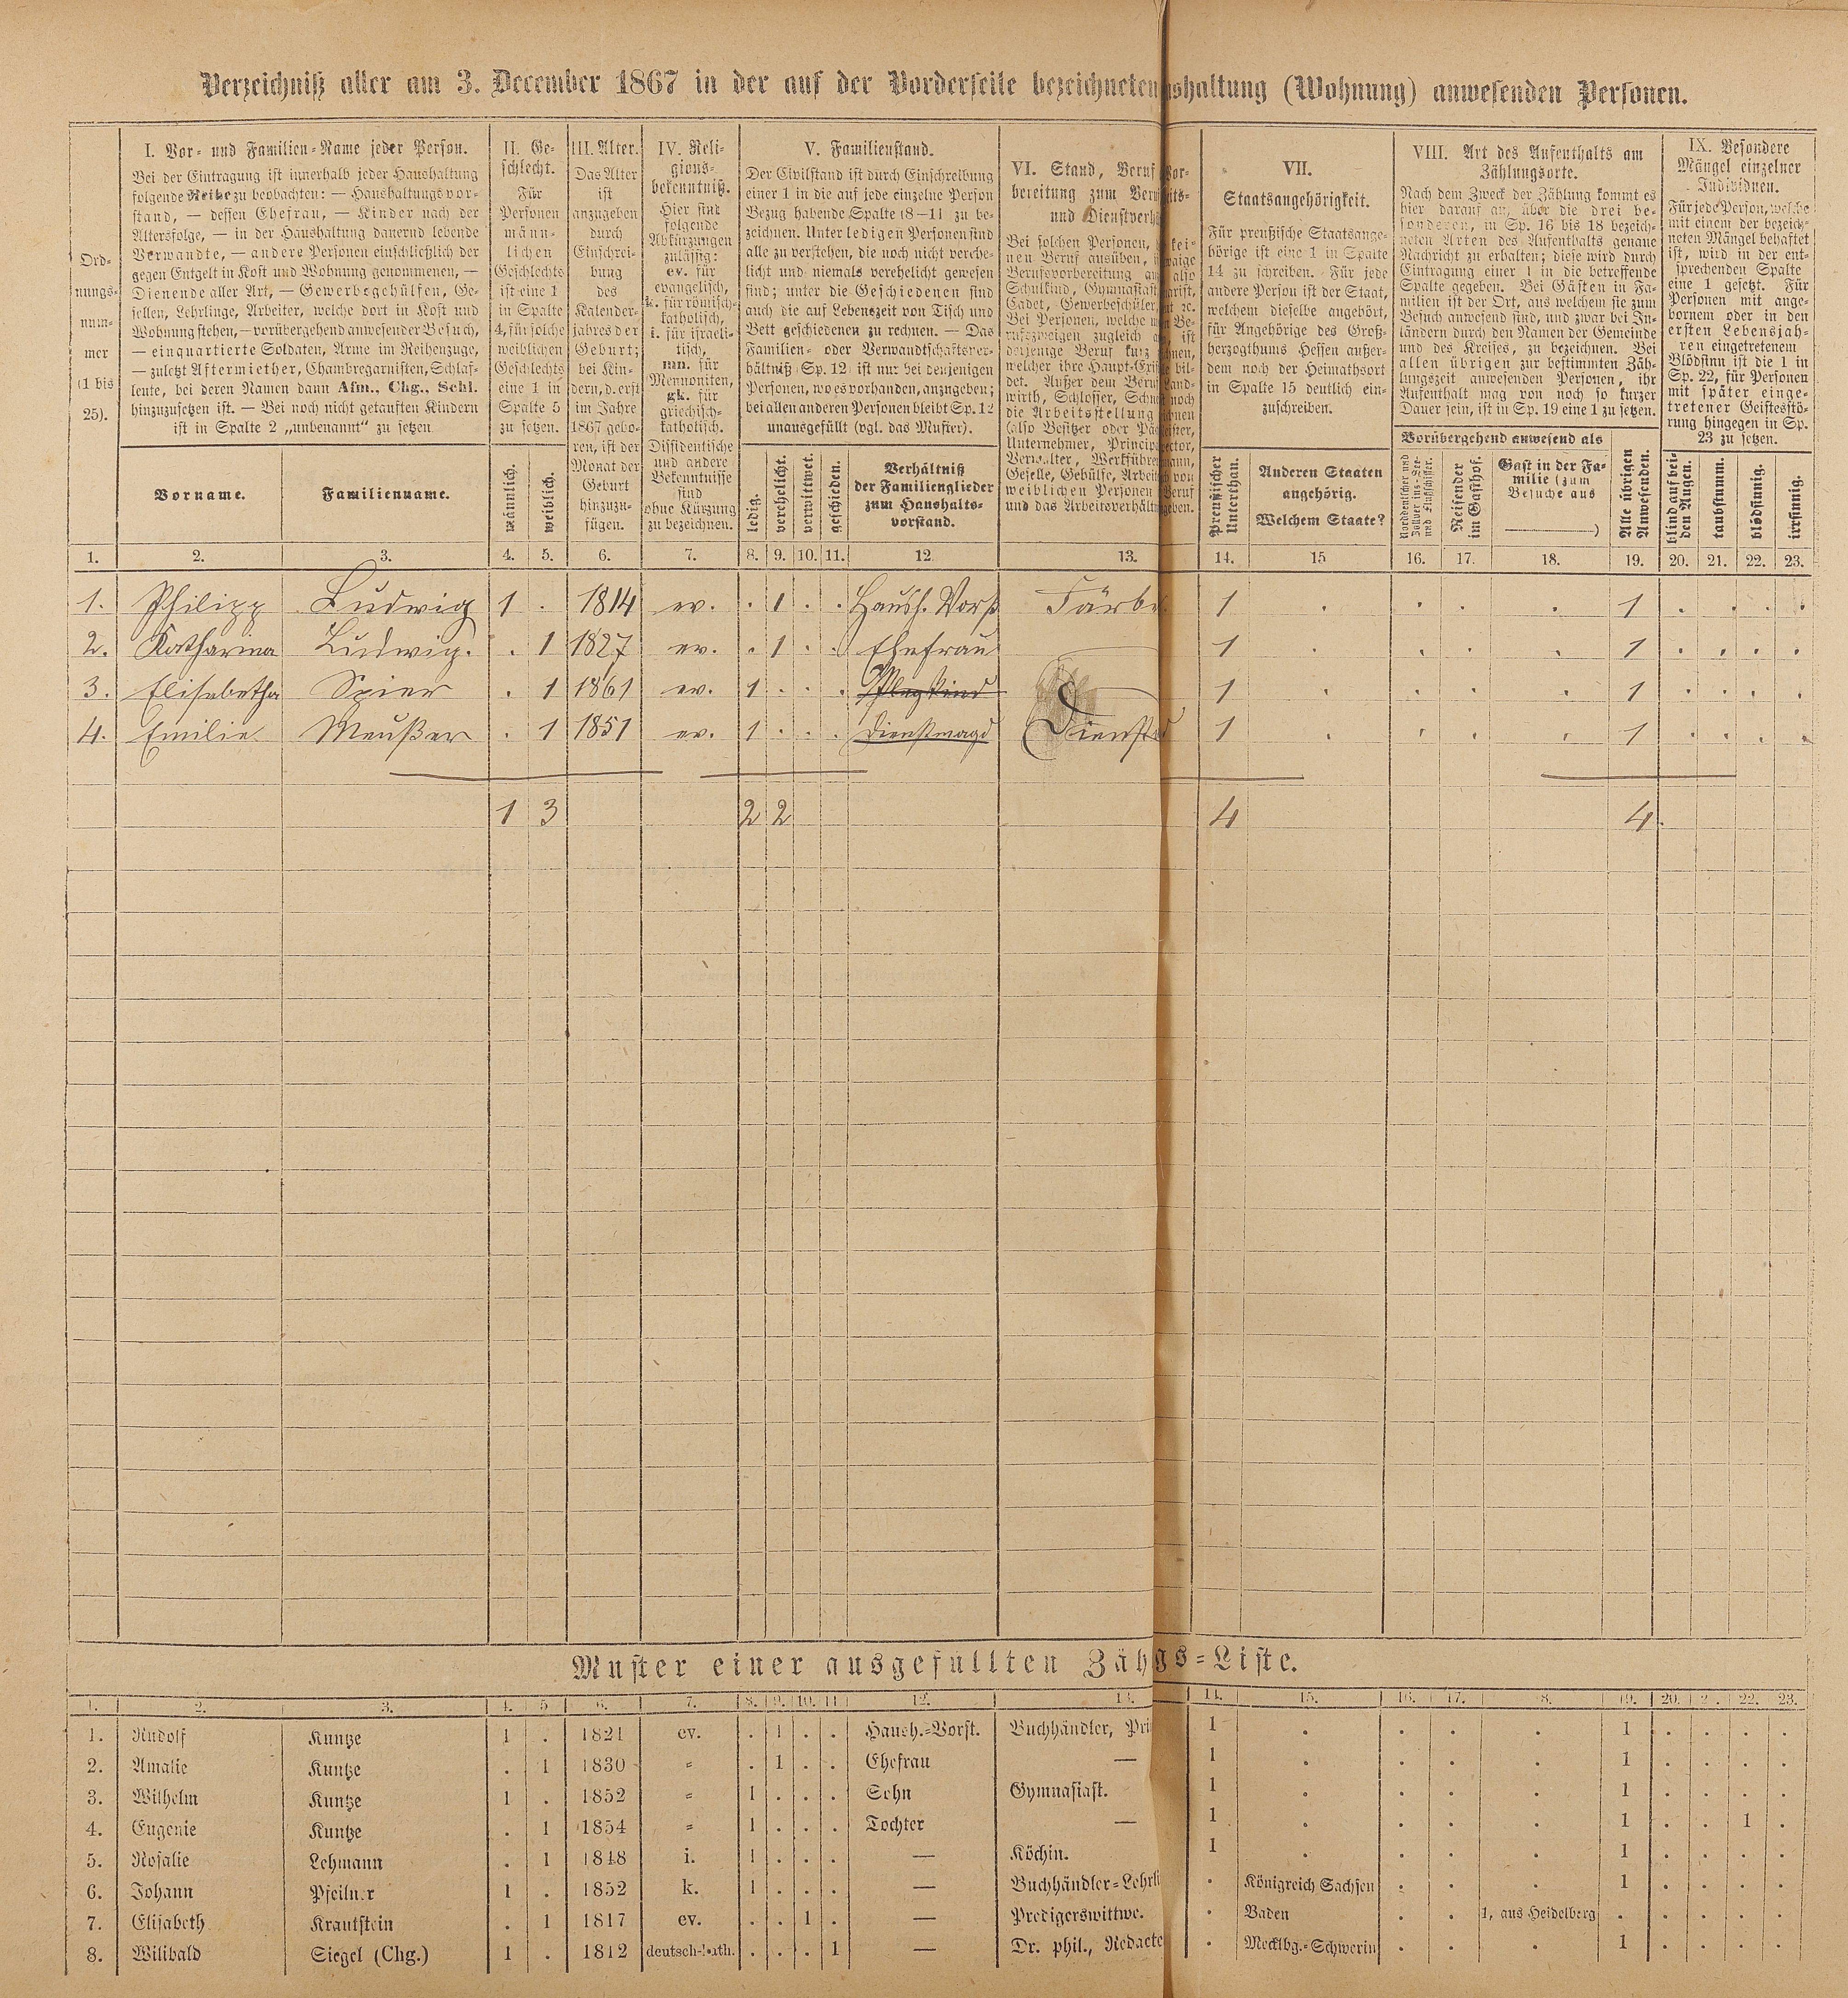 Verzeichniß aller am 3. December 1867 in der auf der Vorderseite bezeichneten shaltung (Wohnung) anwesenden Personen.
Ord-
nungs-
num-
mer
(1 bis
25).
I. Vor- und Familien-Name jeder Person.
Bei der Eintragung ist innerhalb jeder Haushaltung
folgende Reihe zu beobachten: — Haushaltungsvor-
stand, — dessen Ehefrau, — Kinder nach der
Altersfolge, — in der Haushaltung dauernd lebende
Verwandte, — andere Personen einschließlich der
gegen Entgelt in Kost und Wohnung genommenen, —
Dienende aller Art, — Gewerbsgehülfen, Ge-
sellen, Lehrlinge, Arbeiter, welche dort in Kost und
Wohnung stehen, — vorübergehend anwesender Besuch,
— einquartierte Soldaten, Arme im Reihenzuge,
— zuletzt Aftermiether, Chambregarnisten, Schlaf-
leute, bei deren Namen dann Afm., Chg., Schl.
hinzuzusetzen ist. — Bei noch nicht getauften Kindern
ist in Spalte 2 „unbenannt“ zu setzen
Vorname.
Familienname.
II. Ge-
schlecht.
Für
Personen
männ-
lichen
Geschlechts
ist eine 1
in Spalte
4, für solche
weiblichen
Geschlechts
eine 1 in
Spalte 5
zu setzen.
männlich.
weiblich.
III. Alter.
Das Alter
ist
anzugeben
durch
Einschrei-
bung
des
Kalender-
jahres der
Geburt;
bei Kin-
dern, d. erst
im Jahre
1867 gebo-
ren, ist der
Monat der
Geburt
hinzuzu-
fügen.
IV. Reli-
gions-
bekenntniß.
Hier sind
folgende
Abkürzungen
zulässig:
ev. für
evangelisch,
k. für römisch-
katholisch,
i. für israeli-
tisch,
mn. für
Mennoniten,
gk. für
griechisch-
katholisch.
Dissidentische
und andere
Bekenntnisse
sind
ohne Kürzung
zu bezeichnen.
V. Familienstand.
Der Civilstand ist durch Einschreibung
einer 1 in die auf jede einzelne Person
Bezug habende Spalte (8—11) zu be-
zeichnen. Unter ledigen Personen sind
alle zu verstehen, die noch nicht verehe-
licht und niemals verehelicht gewesen
sind; unter die Geschiedenen sind
auch die auf Lebenszeit von Tisch und
Bett geschiedenen zu rechnen. — Das
Familien- oder Verwandtschaftsver-
hältniß (Sp. 12) ist nur bei denjenigen
Personen, wo es vorhanden, anzugeben;
bei allen anderen Personen bleibt Sp. 12
unausgefüllt (vgl. das Muster).
ledig.
verehelicht.
verwittwet.
geschieden.
Verhältniß
der Familienglieder
zum Haushalts-
vorstand.
VI. Stand, Beruf Vor-
bereitung zum Beru its-
und Dienstverh
Bei solchen Personen, kei-
nen Beruf ausüben, waige
Berufsvorbereitung an also
Schulkind, Gymnasiast arist,
Cadet, Gewerbeschüler nt ꝛc.
Bei Personen, welche Be-
rufszweigen zugleich ist
derjenige Beruf kurz hnen,
welcher ihre Haupt-Exist bil-
det. Außer dem Beruf Land-
wirth, Schlosser, Schn noch
die Arbeitsstellung
(also Besitzer oder Pä
Unternehmer, Princip ector,
Verwalter, Werkführe mann,
Geselle, Gehülfe, Arbei von
weiblichen Personen Beruf
und das Arbeitsverhältn geben.
VII.
Staatsangehörigkeit.
Für preußische Staatsange-
hörige ist eine 1 in Spalte
14 zu schreiben. Für jede
andere Person ist der Staat,
welchem dieselbe angehört,
für Angehörige des Groß-
herzogthums Hessen außer-
dem noch der Heimathsort
in Spalte 15 deutlich ein-
zuschreiben.
Preußischer
Unterthan.
Anderen Staaten
angehörig.
Welchem Staate?
VIII. Art des Aufenthalts am
Zählungsorte.
Nach dem Zweck der Zählung kommt es
hier darauf an, über die drei be-
sonderen, in Sp. 16 bis 18 bezeich-
neten Arten des Aufenthalts genaue
Nachricht zu erhalten; diese wird durch
Eintragung einer 1 in die betreffende
Spalte gegeben. Bei Gästen in Fa-
milien ist der Ort, aus welchem sie zum
Besuch anwesend sind, und zwar bei In-
ländern durch den Namen der Gemeinde
und des Kreises, zu bezeichnen. Bei
allen übrigen zur bestimmten Zäh-
lungszeit anwesenden Personen, ihr
Aufenthalt mag von noch so kurzer
Dauer sein, ist in Sp. 19 eine 1 zu setzen.
Vorübergehend anwesend als
Norddeutscher und
Zollvereins-See-
und Flußschiffer.
Reisender
im Gasthof.
Gast in der Fa-
milie (zum
Besuche aus
)
Alle übrigen
Anwesenden.
IX. Besondere
Mängel einzelner
Individuen.
Für jede Person, welche
mit einem der bezeich-
neten Mängel behaftet
ist, wird in der ent-
sprechenden Spalte
eine 1 gesetzt. Für
Personen mit ange-
bornem oder in den
ersten Lebensjah-
ren eingetretenem
Blödsinn ist die 1 in
Sp. 22, für Personen
mit später einge-
tretener Geistesstö-
rung hingegen in Sp.
23 zu setzen.
blind auf bei-
den Augen.
taubstumm.
blödsinnig.
irrsinnig.
1. 2. 3. 4. 5. 6. 7. 8. 9. 10. 11. 12. 13. 14. 15 16. 17. 18. 19. 20. 21. 22. 23.
1. Philipp Ludwig 1 . 1814 ev. . 1 . . Haush. Vorst Färbe 1 . . . . 1 . . . .
2. Katharina Ludwig. . 1 1827 ev. . 1 . . Ehefrau 1 . . . . 1 . . . .
3. Elisabetha Spier . 1 1861 ev. 1 . . . Pflegkind 1 . . . . 1 . . . .
4. Emilie Meußer . 1 1851 ev. 1 . . . Dienstmagd Dienst 1 . . . . 1 . . . .
1 3 2 2 4 4.
Muster einer ausgefüllten Zäh gs-Liste.
1. 2. 3. 4. 5 6. 7. 8. 9. 10. 11 12. 13. 14. 15. 16. 17. 8. 19. 20. 2. 22. 23.
1. Rudolf Kuntze 1 . 1821 ev. . 1 . . Haush.-Vorst. Buchhändler, Pri 1 . . . . 1 . . . .
2. Amalie Kuntze . 1 1830 " . 1 . . Ehefrau — 1 . . . . 1 . . . .
3. Wilhelm Kuntze 1 . 1852 " 1 . . . Sohn Gymnasiast. 1 . . . . 1 . . . .
4. Eugenie Kuntze . 1 1854 " 1 . . . Tochter — 1 . . . . 1 . . 1 .
5. Rosalie Lehmann . 1 1848 i. 1 . . . — Köchin. 1 . . . . 1 . . . .
6. Johann Pfeilner 1 . 1852 k. 1 . . . — Buchhändler-Lehrli . Königreich Sachsen . . . 1 . . . .
7. Elisabeth Krautstein . 1 1817 ev. . . 1 . — Predigerswittwe. . Baden . . 1, aus Heidelberg . . . . .
8. Wilibald Siegel (Chg.) 1 . 1812 deutsch-kath. . . . 1 — Dr. phil., Redacte . Mecklbg.-Schwerin . . . 1 . . . .